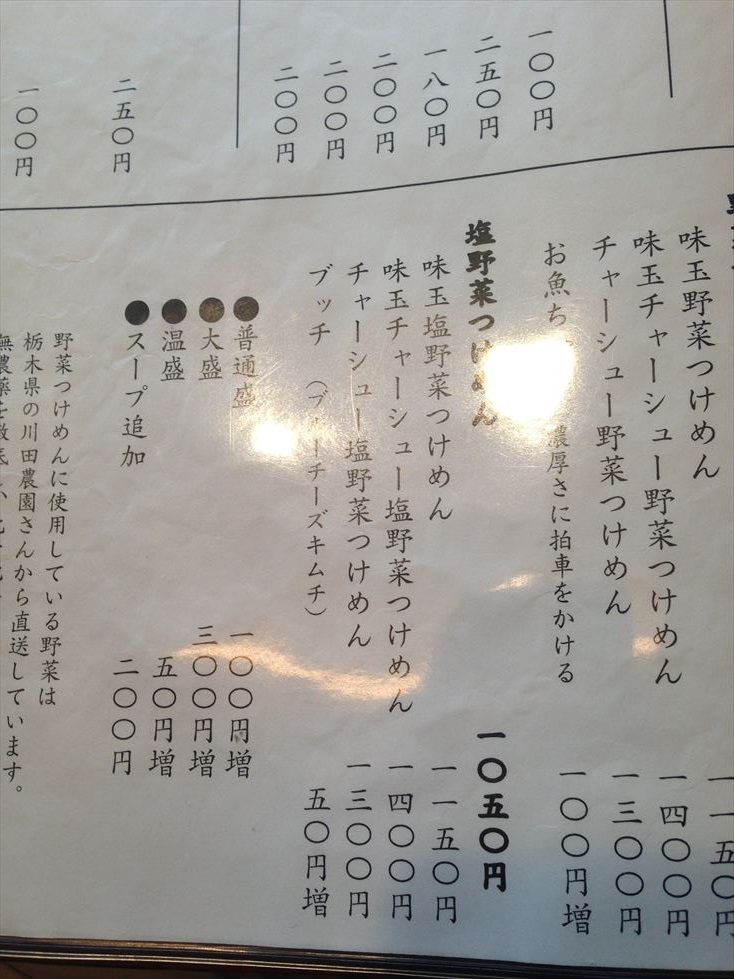 一〇〇円
二五〇円
一八〇円
二〇〇円
二〇〇円
二〇〇円
二五〇円
一〇〇円
味玉野菜つけめん 一一五〇円
味玉チャーシュー野菜つけめん 一四〇〇円
チャーシュー野菜つけめん 一三〇〇円
お魚ち 濃厚さに拍車をかける 一〇〇円増
塩野菜つけめん 一〇五〇円
味玉塩野菜つけめん 一一五〇円
味玉チャーシュー塩野菜つけめん 一四〇〇円
チャーシュー塩野菜つけめん 一三〇〇円
ブッチ チーズキムチ） 五〇円増
●普通盛 一〇〇円増
●大盛 三〇〇円増
●温盛 五〇円増
●スープ追加 二〇〇円
野菜つけめんに使用している野菜は
栃木県の川田農園さんから直送しています。
無農薬を徹底